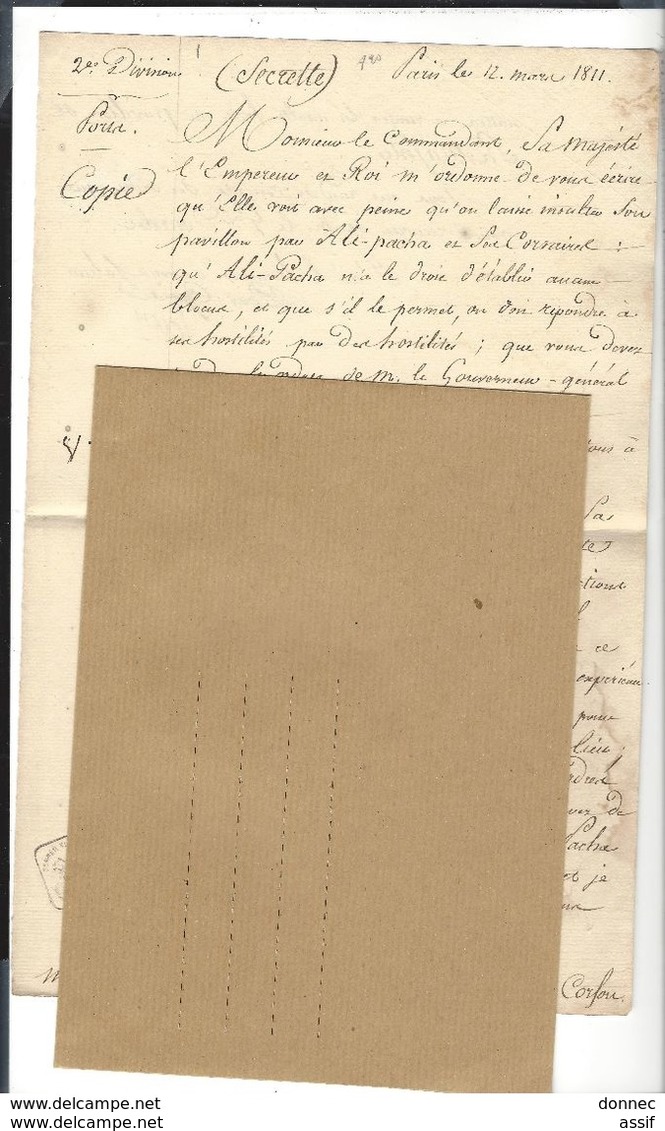 2e Division
(Secrette)
Paris le 12. mars 1811.
Ports.
Copie
Monsieur le Commandant, Sa Majesté
l'Empereur et Roi m'ordonne de vous écrire
qu'Elle voit avec peine qu'on laisse insulter Son
pavillon par Ali-pacha et Ses Corsaires :
qu'Ali-Pacha n'a le droit d'établir aucun
blocus, et que s'il le permet, on doit répondre à
ses hostilités par des hostilités ; que vous devez
de M. le Gouverneur-général
vous à
Sa
tions
ce
expérien
pour
lieu ;
ordres
de
Pacha
et je
Corfou.
donnec
assif